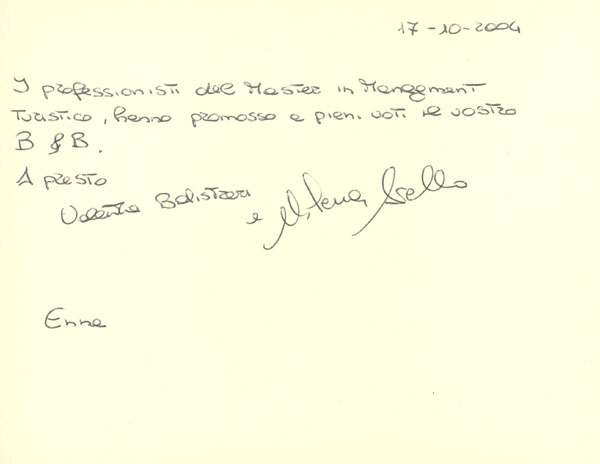 17-10-2004
I professionisti del Master in Management
Turistico, hanno promosso a pieni voti il vostro
B & B.
A presto
Valentina Balistreri
e
Enna